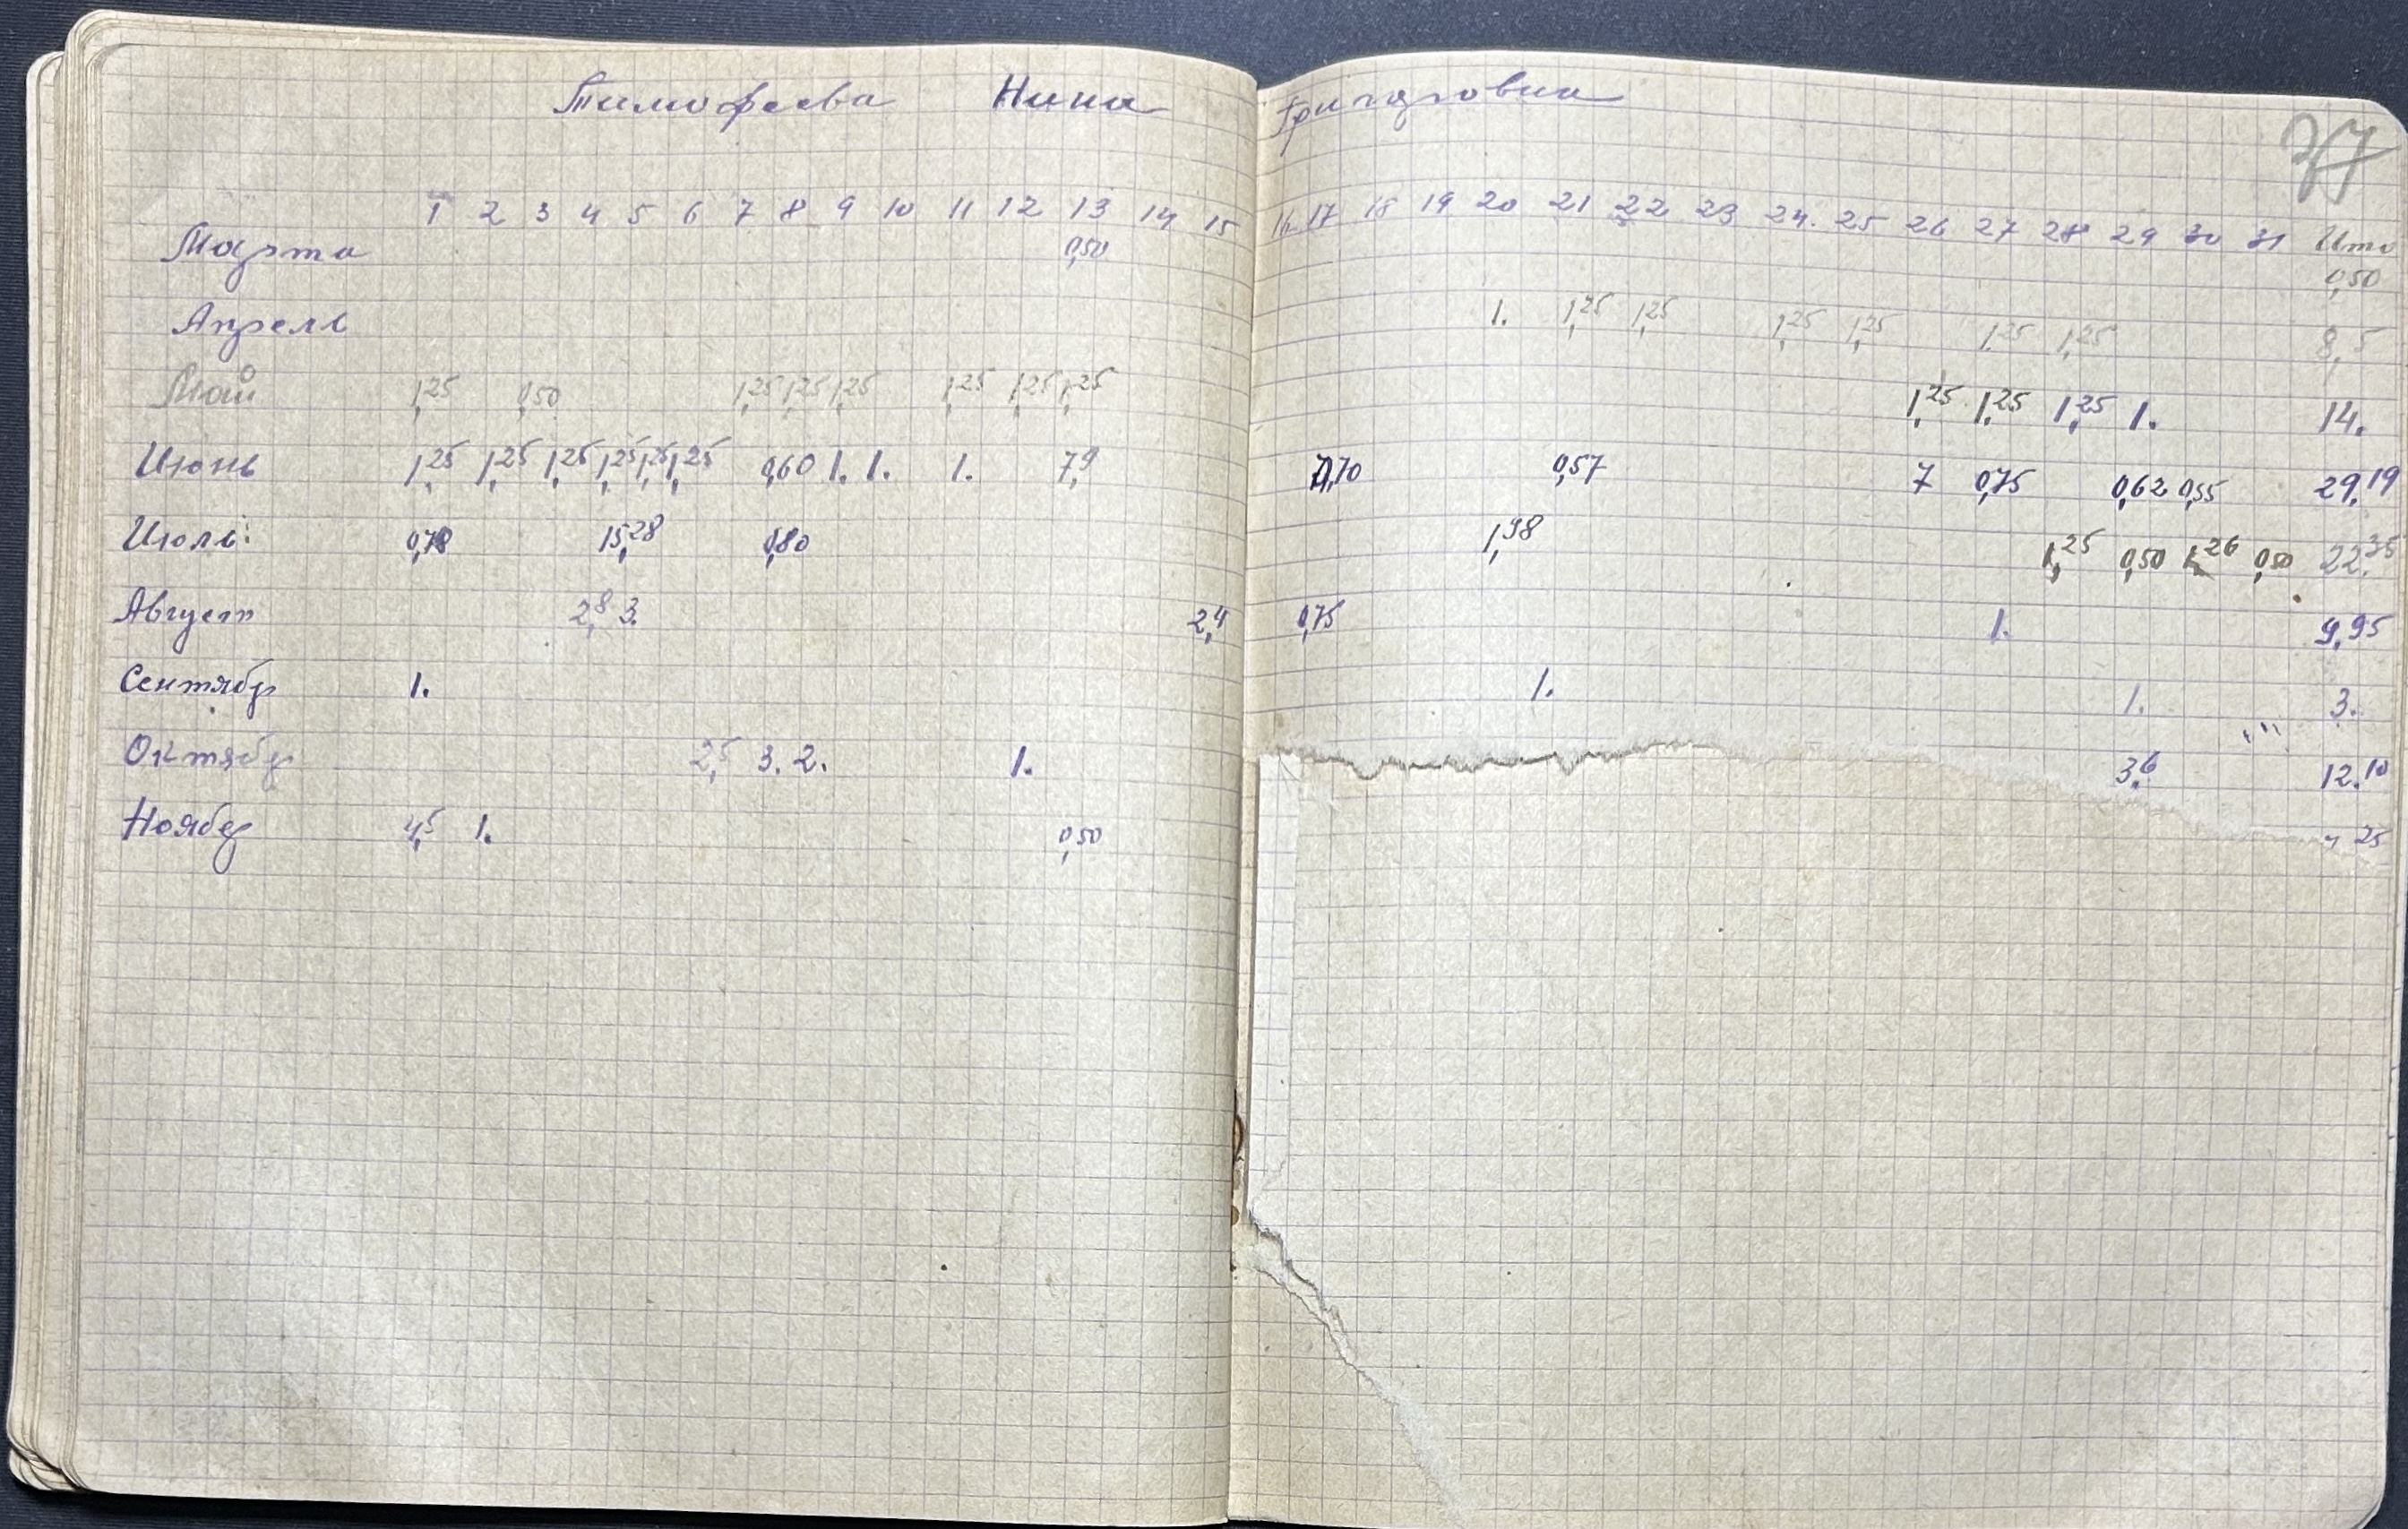 Тимофеева Нина Григорьевна
37
1 2 3 4 5 6 7 8 9 10 11 12 13 14 15 16 17 18 19 20 21 22 23 24. 25 26 27 28 29 30 31 Ито
Марта 0,50 0,50
Апрель 1. 1,25 1,25 1,25 1,25 1,25 1,25 8,5
Май 1,25 0,50 1,25 1,25 1,25 1,25 1,25 1,25 1,25 1,25 1,25 1. 14.
Июнь 1,25 1,25 1,25 1,25 1,25 1,25 0,60 1. 1. 1. 7,9 0,57 7 0,75 0,62 0,55 29,19
Июль 0,78 15,28 0,80 1,98 1,25 0,50 1,26 0,50 22,35
Август 2,8 3. 2,4 0,75 1. 9,95
Сентябр 1. 1. 1. 3.
Октябр 2,5 3. 2. 1. 3,6 12.10
Ноябр 4,5 1. 0,50 25